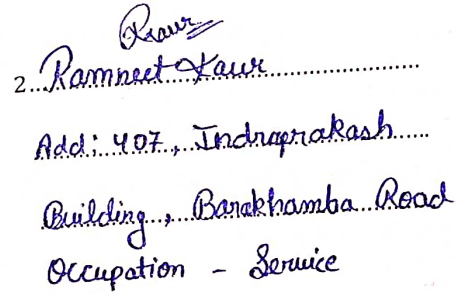 Rkaur
2. Ramneet Kaur
Add: 407, Indraprakash
Building, Barakhamba Road
Occupation - Service